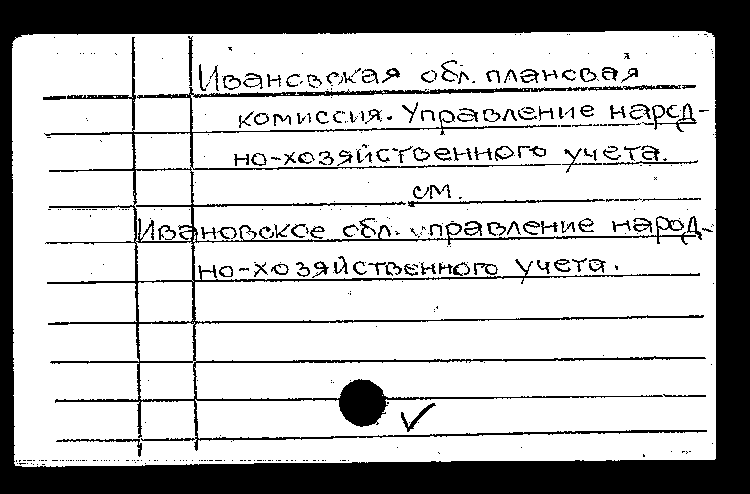 Ивановская обл. плановая
комиссия. Управление народ-
но-хозяйственного учета.
см.
Ивановское обл. управление народ-
но-хозяйственного учета.